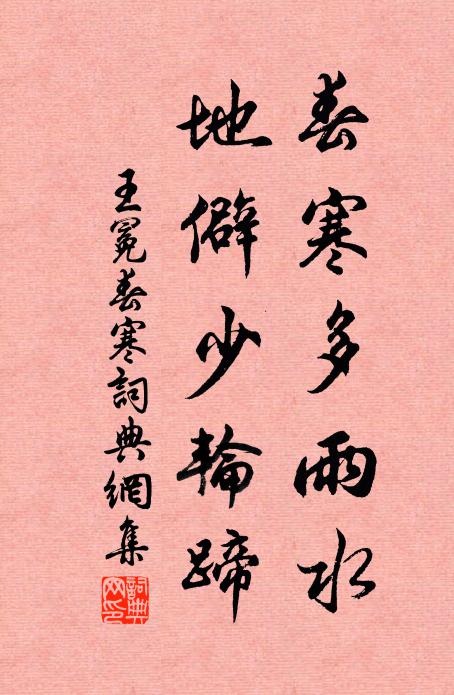 春寒多雨水
地僻少輪蹄
王冕春寒詞典網集
詞典網印